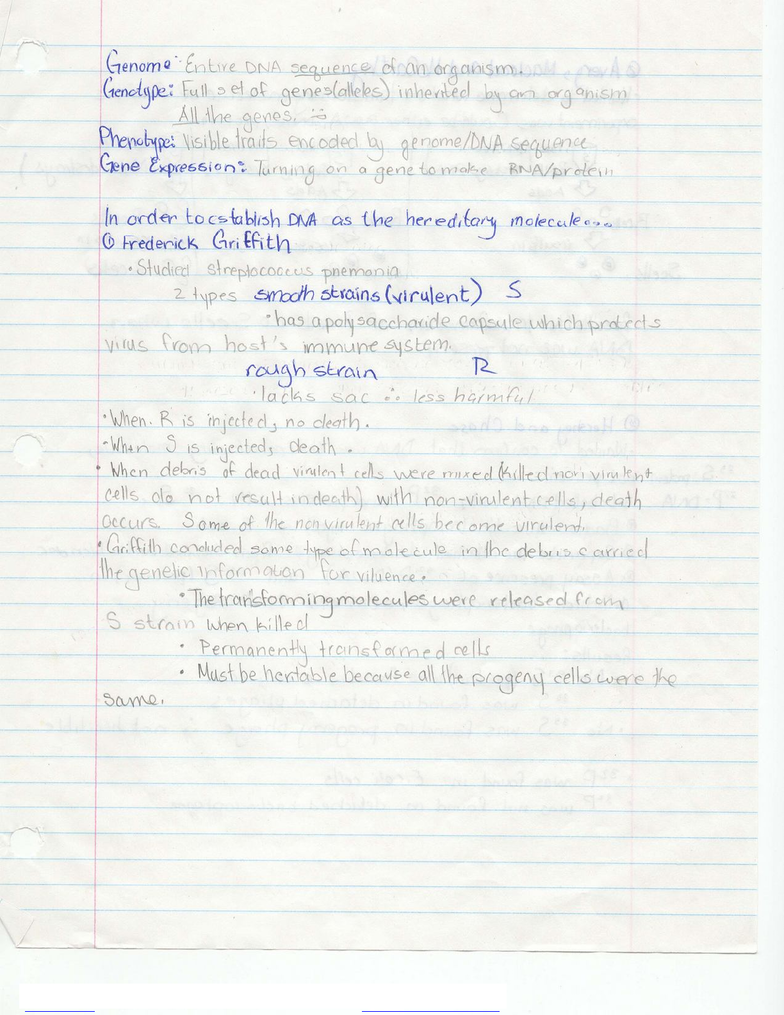 Genome: Entire DNA sequence of an organism.
Genotype: Full set of genes(alleles) inherited by an organism
All the genes.
Phenotype: Visible traits encoded by genome/DNA sequence
Gene Expression: Turning on a gene to make RNA/protein
In order to establish DNA as the hereditary molecule...
① Frederick Griffith
• Studied streptococcus pnemania
2 types smooth strains (virulent) S
• has a polysaccharide capsule which protects
virus from host's immune system.
rough strain R
• lacks sac ∴ less harmful
• When R is injected, no death.
• When S is injected, death.
• When debris of dead virulent cells were mixed (killed non virulent
cells do not result in death) with non-virulent cells, death
occurs. Some of the nonvirulent cells become virulent.
• Griffith concluded some type of molecule in the debris carried
the genetic information for viluence.
• The transforming molecules were released from
S strain when killed
• Permanently transformed cells
• Must be heritable because all the progeny cells were the
same.